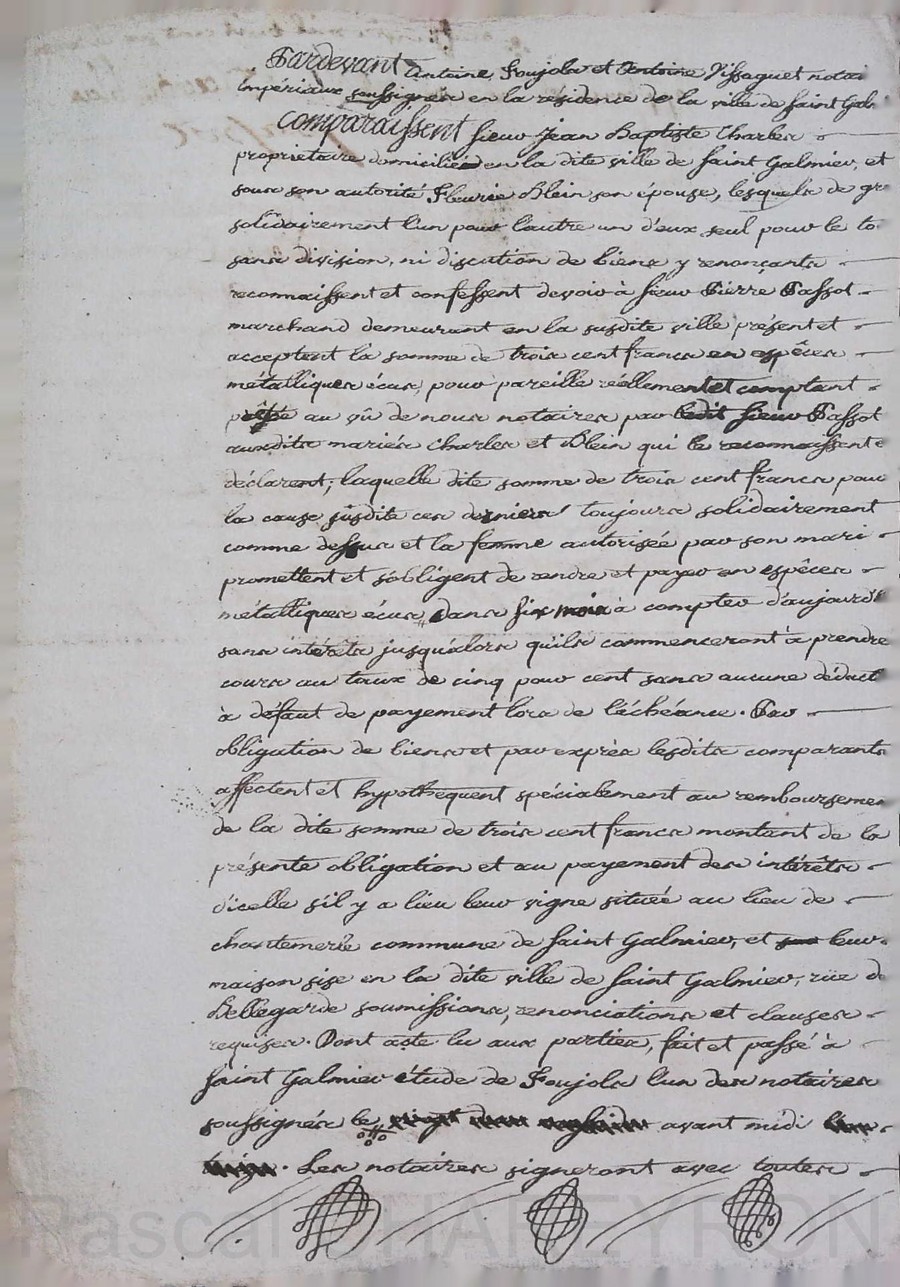 Pardevant Antoine Poujols et Antoine Vissaguet notai
impériaux soussignés en la résidence de la ville de Saint Gal
Comparaissent sieur Jean Baptiste Charles
propriétaire domicilié en la dite ville de Saint Galmier, et
sous son autorité Fleurie Blein son épouse, lesquels de gré
solidairement l'un pour l'autre un d'eux seul pour le to
sans division, ni discution de biens y renonçants
reconnaissent et confessent devoir à sieur Pierre Passot
marchand demeurant en la susdite ville présent et
acceptent la somme de trois cent francs en espêces
métalliques écus, pour pareille réellement et comptant
au vû de nous notaires par ledit sieur Passot
auxdits mariés Charles et Blein qui le reconnaissent e
déclarent, laquelle dite somme de trois cent francs pour
la cause susdite ces derniers toujours solidairement
comme dessus et la femme autorisée par son mari
promettent et s'obligent de rendre et payer en espêces
métalliques écus dans six mois à compter d'aujourd'
sans intérêts jusqu'alors qu'ils commenceront à prendre
cours au taux de cinq pour cent sans aucune déduct
à défaut de payement lors de l'échéance. Par
obligation de biens et par exprès lesdits comparants
affectent et hypothequent spécialement au remboursemen
de la dite somme de trois cent francs montant de la
présente obligation et au payement des intérêts
d'icelle s'il y a lieu leur vigne située au lieu de
chantemerle commune de Saint Galmier, et leur
maison sise en la dite ville de Saint Galmier, rüe de
Bellegarde soumissions, renonciations et clauses
requises. Dont acte lu aux parties, fait et passé à
Saint Galmier étude de Poujols l'un des notaires
soussignés le avant midi
Les notaires signeront avec toutes
Pascal CHAREYRON